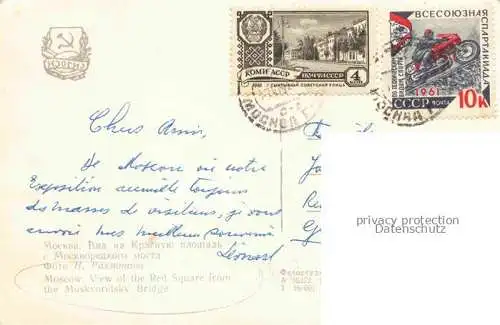 ВСЕСОЮЗНАЯ
СПАРТАКИАДА
КОМИ АССР ПОЧТА СССР
4
1961 Г. СЫКТЫВКАР. СОВЕТСКАЯ УЛИЦА
1961
СССР ПОЧТА 10к
МОСКВА
МОСКВА
Chers Amis,
De Moscou où notre
Exposition accueille toujours
des masses de visiteurs, je vous
envoie mes meilleurs souvenirs
privacy protection
Datenschutz
Москва. Вид на Красную площадь
с Москворецкого моста
Фото Н. Рахманова
Moscow. View of the Red Square from
the Moskvoretsky Bridge